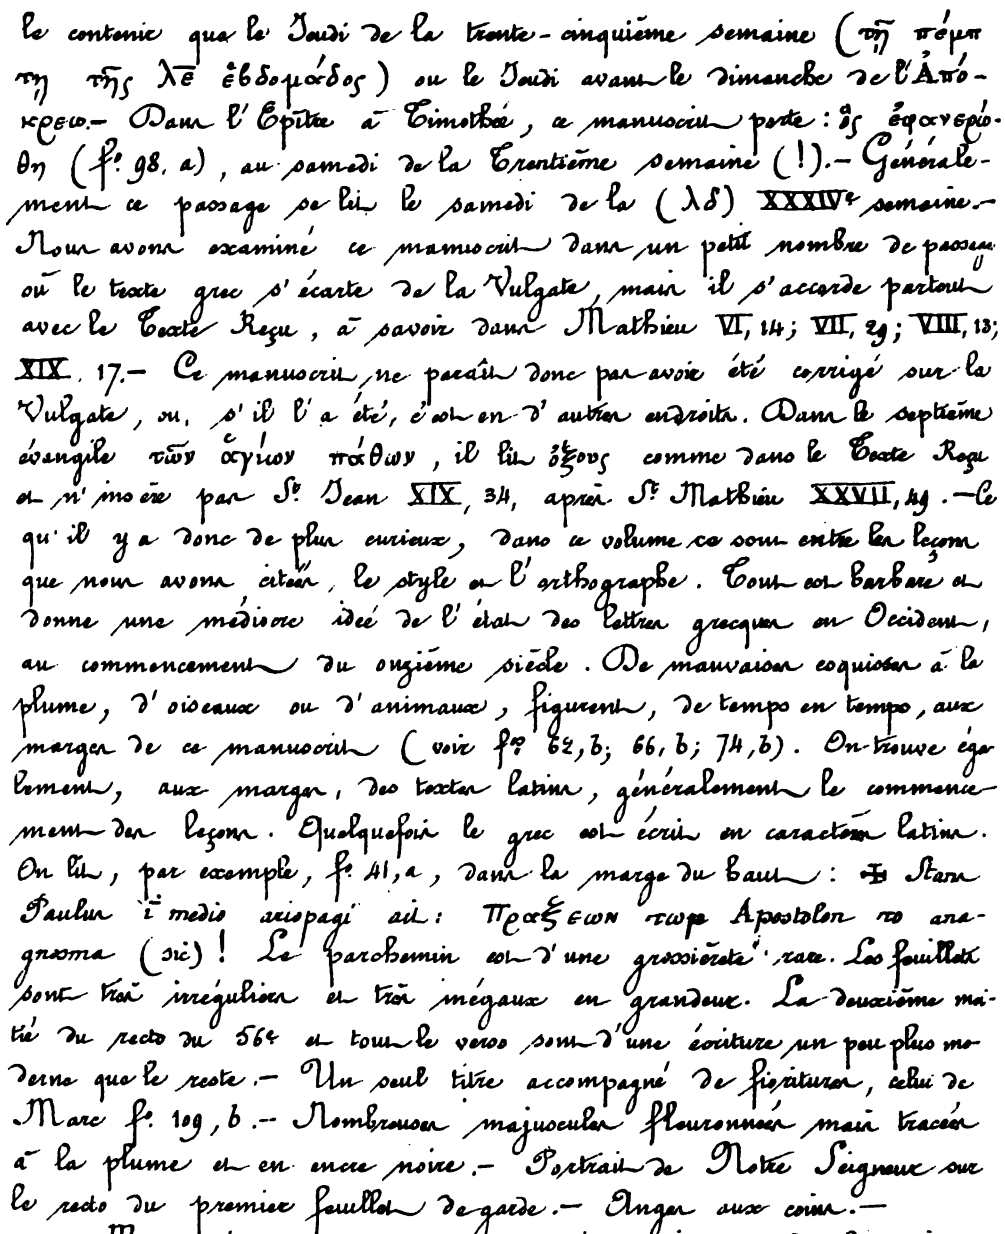 le contenir que le Jeudi de la trente-cinquième semaine (τῇ πέμπ
τῃ τῆς λε ἑβδομάδος) ou le Jeudi avant le dimanche de l'Ἀπό-
κρεω.- Dans l'Epître à Timothée, ce manuscrit porte : ὃς ἐφανερώ-
θη (f° 98, a), au samedi de la Trentième semaine (!).- Générale-
ment ce passage se lit le samedi de la (λδ) XXXIVe semaine.-
Nous avons examiné ce manuscrit dans un petit nombre de passages
où le texte grec s'écarte de la Vulgate, mais il s'accorde partout
avec le Texte Reçu, à savoir dans Mathieu VI, 14; VII, 29; VIII, 13;
XIX, 17.- Ce manuscrit ne paraît donc pas avoir été corrigé sur la
Vulgate, ou, s'il l'a été, c'est en d'autres endroits. Dans le septième
évangile τῶν ἁγίων πάθων, il lit ὄξους comme dans le Texte Reçu
et n'insère pas St Jean XIX, 34, après St Mathieu XXVII, 49.-Ce
qu'il y a donc de plus curieux, dans ce volume ce sont entre les leçons
que nous avons citées, le style et l'orthographe. Tout est barbare et
donne une médiocre idée de l'état des lettres grecques en Occident,
au commencement du onzième siècle. De mauvaises esquisses à la
plume, d'oiseaux ou d'animaux, figurent, de temps en temps, aux
marges de ce manuscrit (voir fos 62, b; 66, b; 74, b). On trouve éga-
lement, aux marges, des textes latins, généralement le commence-
ment des leçons. Quelquefois le grec est écrit en caractères latins.
On lit, par exemple, f° 41, a, dans la marge du haut : ✠ Stans
Paulus ī medio ariopagi ait: Πραξεων τωρ Apostolon το ana-
gnosma (sic)! Le parchemin est d'une grossièreté rare. Les feuillets
sont très irréguliers et très inégaux en grandeur. La deuxième moi-
tié du recto du 56e et tout le verso sont d'une écriture un peu plus mo-
derne que le reste.- Un seul titre accompagné de fioritures, celui de
Marc f° 109, b.- Nombreuses majuscules fleuronnées mais tracées
à la plume et en encre noire.- Portrait de Notre Seigneur sur
le recto du premier feuillet de garde.- Anges aux coins.-